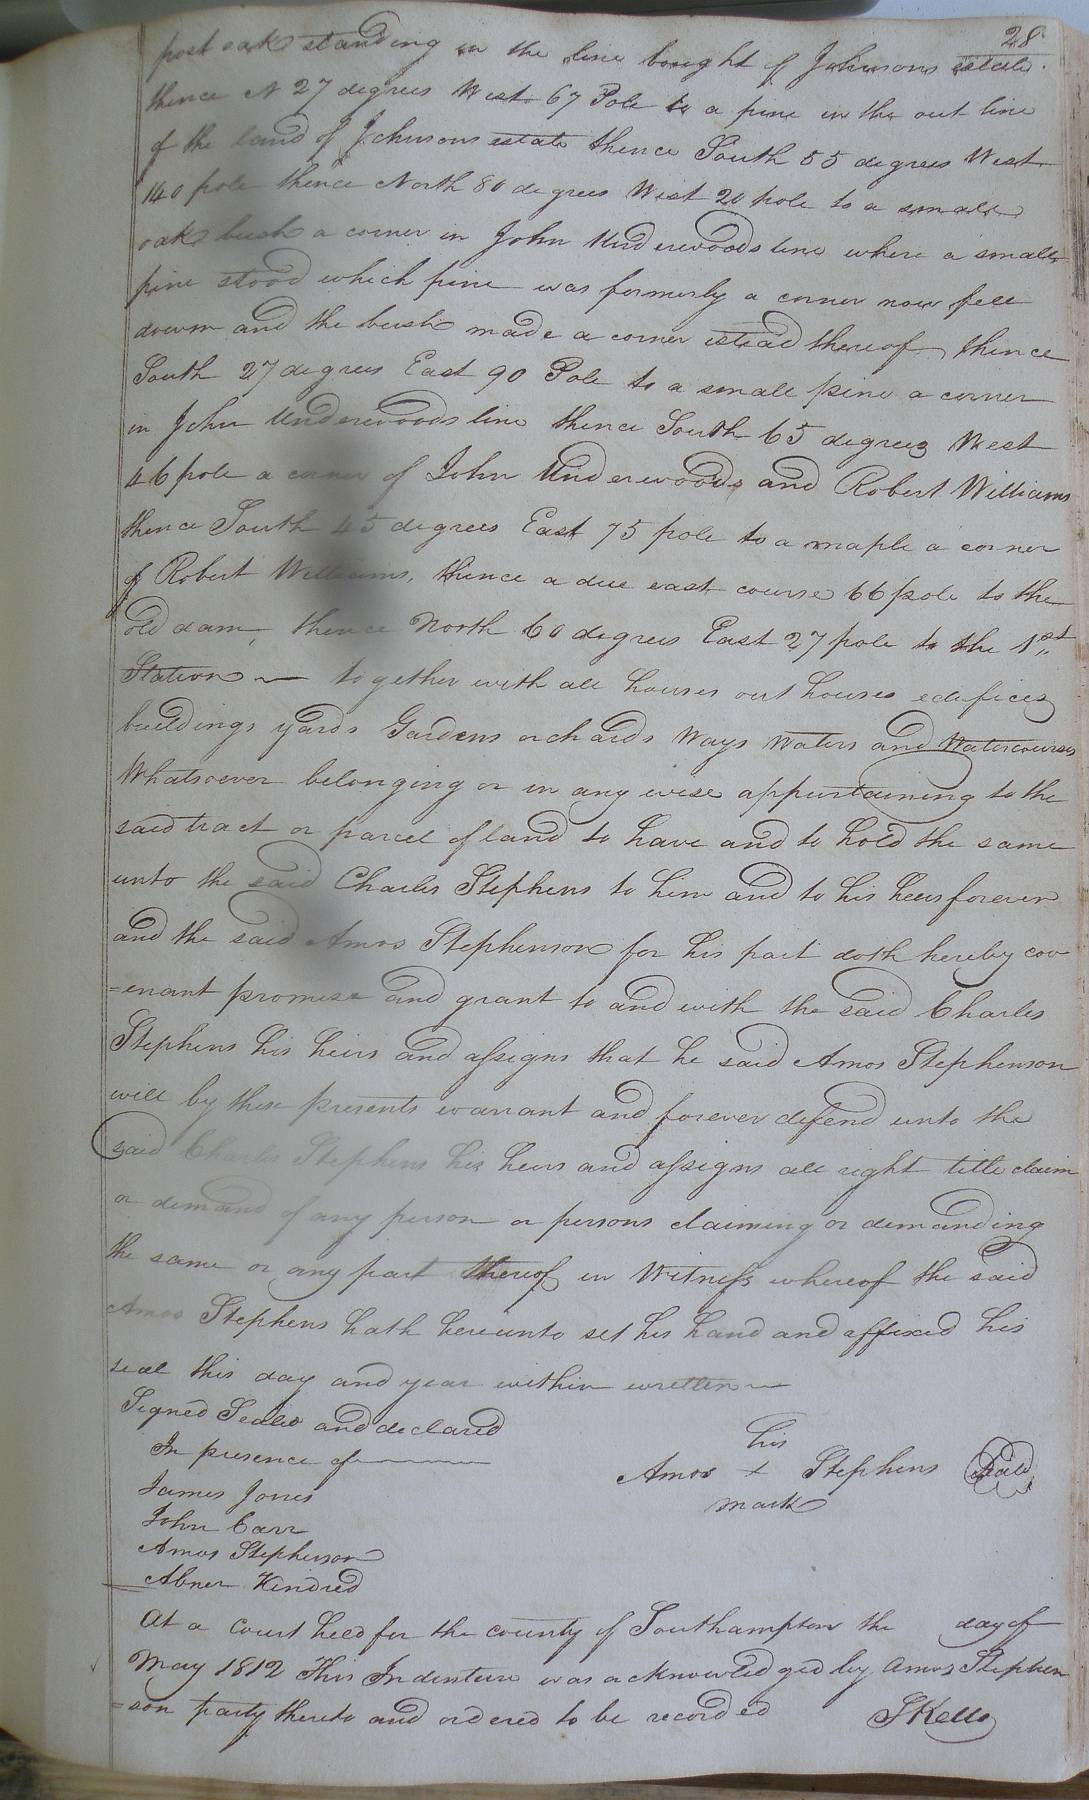 28
post oak standing in the line bought of Johnsons estate.
thence N 27 degrees West 67 Pole to a pine in the out line
of the land of Johnsons estate thence South 55 degrees West
140 pole thence North 80 degrees West 20 pole to a small
oak bush a corner in John Underwoods line where a small
pine stood which pine was formerly a corner now fell
down and the bush made a corner istead thereof thence
South 27 degrees East 90 Pole to a small pine a corner
in John Underwoods line thence South 65 degrees West
46 pole a corner of John Underwoods and Robert Williams
thence South 45 degrees East 75 pole to a maple a corner
of Robert Williams, thence a due east course 66 pole to the
old dam, thence North 60 degrees East 27 pole to the 1st
Station — together with all houses out houses edifices
buildings yards Gardens orchards Ways Waters and Watercourses
Whatsoever belonging or in any wise appurtaining to the
said tract or parcel of land to have and to hold the same
unto the said Charles Stephens to him and to his heirs forever
and the said Amos Stephenson for his part doth hereby cov
=enant promise and grant to and with the said Charles
Stephens his heirs and assigns that he said Amos Stephenson
will by these presents warrant and forever defend unto the
said Charles Stephens his heirs and assigns all right title claim
or demand of any person or persons claiming or demanding
the same or any part thereof in Witness whereof the said
Amos Stephens hath hereunto set his hand and affixed his
seal this day and year within written —
Signed Sealed and declared
In presence of
James Jones
John Carr
Amos Stephenson
Abner Kindred
his
Amos + Stephens Seal
mark
At a Court held for the county of Southampton the day of
May 1812 This Indenture was acknowledged by Amos Stephen
=son party thereto and ordered to be recorded SKello